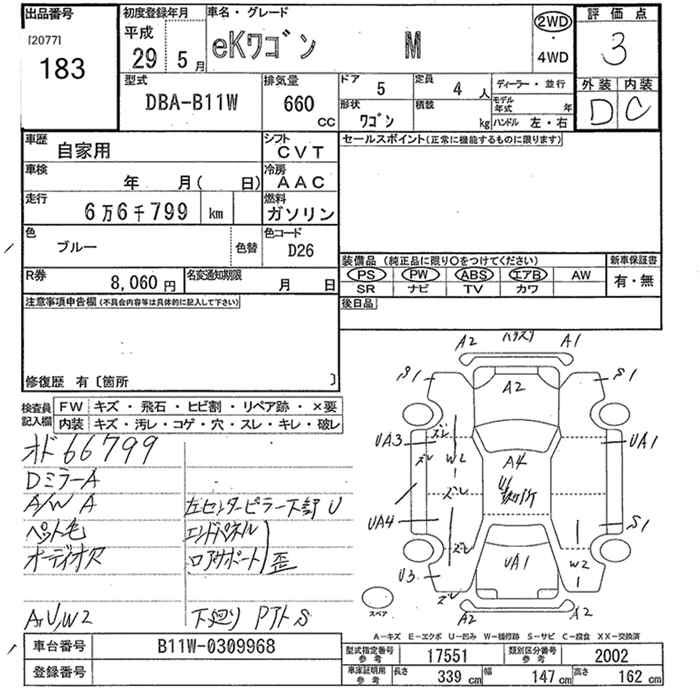 出品番号
[2077]
183
初度登録年月
平成
29 5 月
車名・グレード
eKワゴン M
2WD
・
4WD
評価点
3
外装 内装
D C
型式
DBA-B11W
排気量
660
CC
ドア
5
定員
4 人
ディーラー・並行
形状
ワゴン
積載
kg
モデル年式 年
ハンドル 左・右
車歴
自家用
シフト
CVT
セールスポイント(正常に機能するものに限ります)
車検
年 月( 日)
冷房
AAC
走行
6万6千799 km
燃料
ガソリン
色
ブルー
色替
色コード
D26
装備品(純正品に限り○をつけてください)
新車保証書
PS PW ABS エアB AW
有・無
SR ナビ TV カワ
R券
8,060 円
名変通知期限
月 日
後日品
注意事項申告欄(不具合内容等は具体的に記入して下さい)
修復歴 有〔箇所 〕
検査員記入欄
FW キズ・飛石・ヒビ割・リペア跡・×要
内装 キズ・汚レ・コゲ・穴・スレ・キレ・破レ
オド66799
DミラーA
A/W A
左センターピラー下部 U
ペット毛
エンドパネル
オーディオ欠
ロアサポート 歪
A,U,W2
下廻り Pアト S
A2 A1
S1 A2 S1
UA3 ズレ W2 A4 UA1
ズレ
ズレ
UA4 S1
ズレ UA1 W2
U3
ズレ A2 A2
スペア
A−キズ E−エクボ U−凹み W−補修跡 S−サビ C−腐食 XX−交換済
車台番号
B11W-0309968
登録番号
型式指定番号 参考
17551
類別区分番号 参考
2002
車庫証明用 参考
長さ 339 cm
幅 147 cm
高さ 162 cm